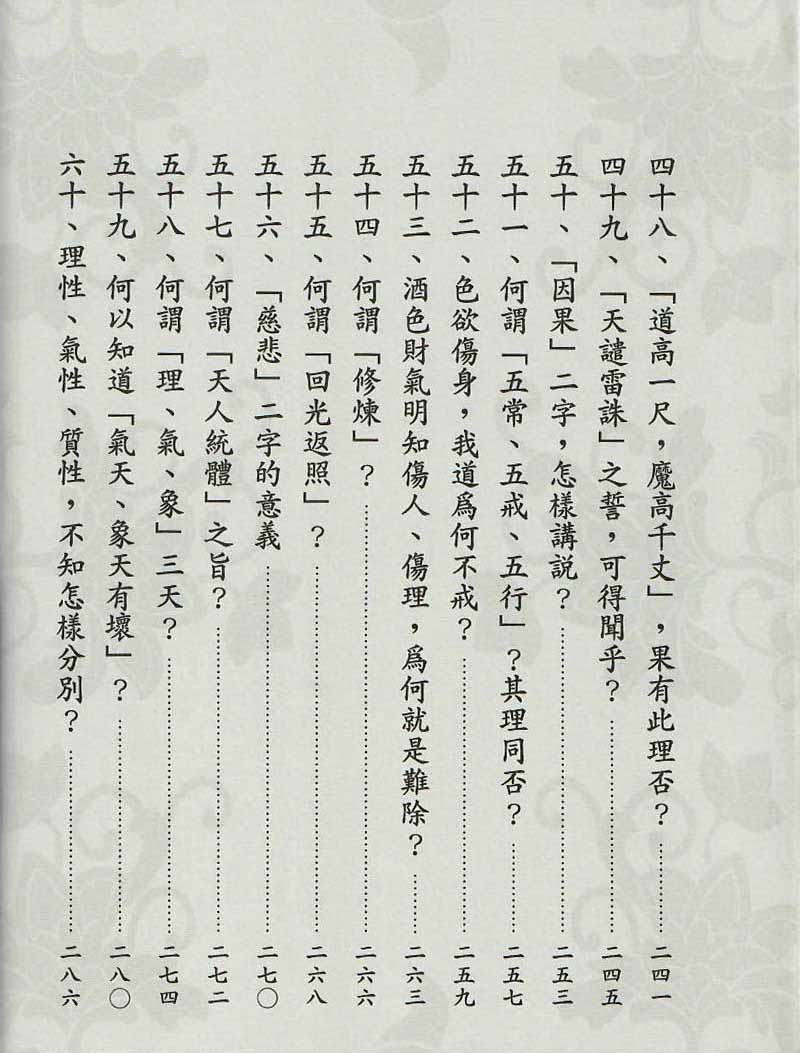 四十八、「道高一尺，魔高千丈」，果有此理否？……二四一
四十九、「天譴雷誅」之誓，可得聞乎？……二四五
五十、「因果」二字，怎樣講說？……二五三
五十一、何謂「五常、五戒、五行」？其理同否？……二五七
五十二、色欲傷身，我道爲何不戒？……二五九
五十三、酒色財氣明知傷人、傷理，爲何就是難除？……二六三
五十四、何謂「修煉」？……二六六
五十五、何謂「回光返照」？……二六八
五十六、「慈悲」二字的意義……二七〇
五十七、何謂「天人統體」之旨？……二七二
五十八、何謂「理、氣、象」三天？……二七四
五十九、何以知道「氣天、象天有壞」？……二八〇
六十、理性、氣性、質性，不知怎樣分別？……二八六